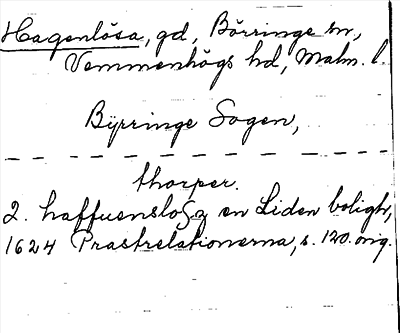 Hagenlösa, gd, Börringe sn,
Vemmenhögs hd, Malm. l.
Byrringe Sogen,
thorper.
2. haffuenslosz en Liden boligh,
1624 Prastrelationerna, s. 120. orig.